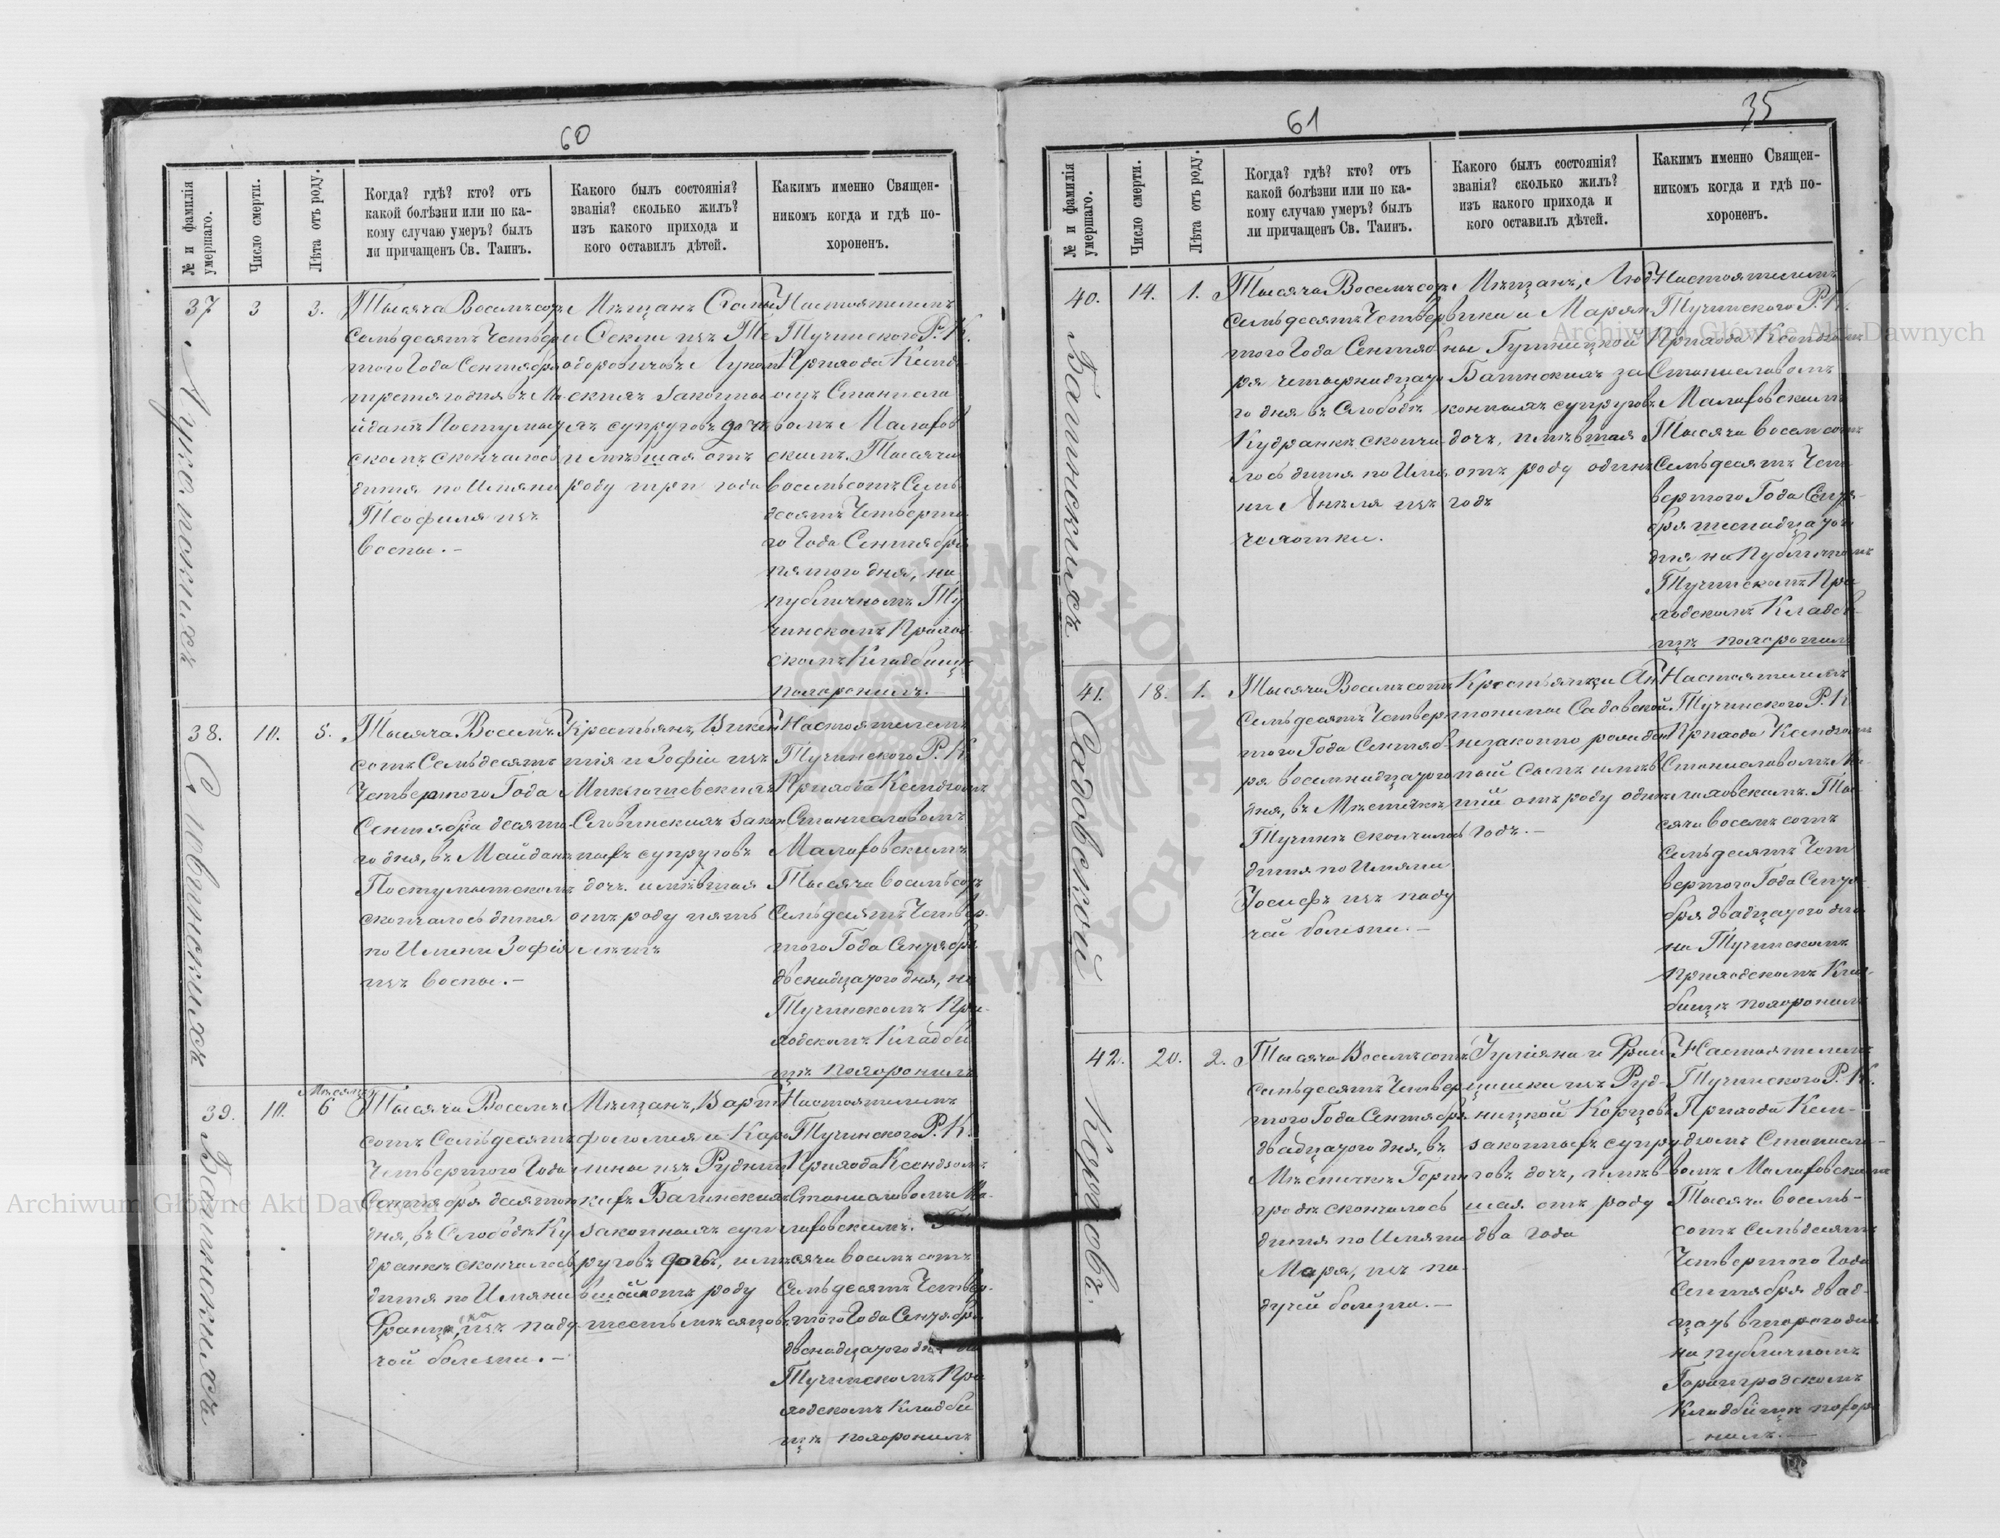 60
№ и фамилія умершаго.
Число смерти.
Лѣта отъ роду.
Когда? гдѣ? кто? отъ
какой болѣзни или по ка-
кому случаю умеръ? былъ
ли причащенъ Св. Таинъ.
Какого былъ состоянія?
званія? сколько жилъ?
изъ какого прихода и
кого оставилъ дѣтей.
Какимъ именно Священ-
никомъ когда и гдѣ по-
хороненъ.
37
3
3.
Тысяча Восемьсотъ
Семьдесятъ Четвер
того Года Сентября
третяго дня въ Ма
йданѣ Постумы
скомъ скончалось
дитя по Имяни
Теофиля изъ
воспы.-
законныхъ супруговъ дочь
имѣвшая отъ
роду три года
Настоятелемъ
Тучинского Р. К.
Прихода Ксенд
зомъ Станисла
вомъ Малаφов
скимъ. Тысяча
восемьсотъ Семь
десятъ Четверта
го Года Сентября
пятого дня, на
публичномъ Ту
чинскомъ Приход
скомъ Кладбищѣ
похоронилъ.-
38.
10.
5.
Словинскихъ
Тысяча Восемь
сотъ Семьдесятъ
Четвертого Года
Сентября десята-
го дня, въ Майданѣ
Постумытскомъ
скончалось дитя
по Имени Зофія
изъ воспы.-
Крестьянъ, Викен
тія и Зофіи изъ
Словинскихъ закон
ныхъ супруговъ
дочь имѣвшая
отъ роду пять
лѣтъ
Настоятелемъ
Тучинского Р. К.
Прихода Ксендзомъ
Станиславомъ
Малаφовскимъ
Тысяча восемьсотъ
Семьдесятъ Четвер-
того Года Сентября
двенадцатого дня, на
Тучинскомъ При-
ходскомъ Кладби
щѣ похоронилъ
39.
10.
Мѣсяцы
6
Багинскихъ
Тысяча Восемь
сотъ Семьдесятъ
Четвертого Года
Сентября десятого
дня, въ Слободѣ Ку
дранкѣ скончалось
дитя по Имяни
изъ паду-
чей болезни.-
Мѣщанъ, Варт
фоломея и Каро
лины изъ Рудниц
кихъ Багинскихъ
законныхъ суп
руговъ дочь, имѣ
отъ роду
шесть мѣсяцовъ
Настоятелемъ
Тучинского Р. К.
Прихода Ксендзомъ
Станиславомъ Ма-
лаφовскимъ. Ты
сяча восемьсотъ
Семьдесятъ Четвер-
того Года Сентября
двенадцатого дня на
Тучинскомъ При
ходскомъ Кладби
щѣ похоронилъ
61
35
№ и фамилія умершаго.
Число смерти.
Лѣта отъ роду.
Когда? гдѣ? кто? отъ
какой болѣзни или по ка-
кому случаю умеръ? былъ
ли причащенъ Св. Таинъ.
Какого былъ состоянія?
званія? сколько жилъ?
изъ какого прихода и
кого оставилъ дѣтей.
Какимъ именно Священ-
никомъ когда и гдѣ по-
хороненъ.
40.
14.
1.
Багинскихъ
Тысяча Восемьсотъ
Семьдесятъ Четвер
того Года Сентяб
ря четырнадцато
го дня въ Слободѣ
Кудранкѣ сконча
лось дитя по Име
ни Анеля изъ
чахотки.
Мѣщанъ, Люд
вика и Марян
ны
Багинскихъ за
конныхъ супруговъ
дочь, имѣвшая
отъ роду одинъ
годъ
Настоятелемъ
Тучинского Р. К.
Прихода Ксендзомъ
Станиславомъ
Малаφовскимъ
Тысяча восемьсотъ
Семьдесятъ Чет
вертого Года Сентя-
бря шеснадцатого
дня на Публичномъ
Тучинскомъ При
ходскомъ Кладби
щѣ похоронилъ
41.
18.
1.
Садовской
Тысяча Восемьсотъ
Семьдесятъ Четвер
того Года Сентяб
ря восемнадцатого
дня, въ Мѣстечкѣ
Тучинѣ скончалось
дитя по Имяни
Іосифъ изъ паду
чей болезни.-
Крестьянки Ан
тонины Садовской
незаконно рожден
ный Сынъ имѣв
шій отъ роду одинъ
годъ.-
Настоятелемъ
Тучинского Р. К.
Прихода Ксендзомъ
Станиславомъ Ма-
лаховскимъ. Ты
сяча восемьсотъ
Семьдесятъ Чет
вертого Года Сентя-
бря двадцатого дня
на Тучинскомъ
Приходскомъ Клад-
бищѣ похоронилъ
42.
20.
2.
Тысяча Восемьсотъ
Семьдесятъ Четвер
того Года Сентября
двадцатого дня, въ
Мѣстечкѣ Горин
градѣ скончалось
дитя по Имяни
Маря, изъ па-
дучей болезни.-
Юліяна и Фран
цишки изъ Руд-
ницкой
законныхъ супру
говъ дочь, имѣв
шая отъ роду
два года
Настоятелемъ
Тучинского Р. К.
Прихода Ксен-
дзомъ Станисла-
вомъ Малаφовскимъ
Тысяча восемь-
сотъ Семьдесятъ
Четвертого Года
Сентября двад-
цать второго дня
на публичномъ
Горинградскомъ
Кладбищѣ похоро
нилъ.-
Archiwum Główne Akt Dawnych
Archiwum Główne Akt Dawnych